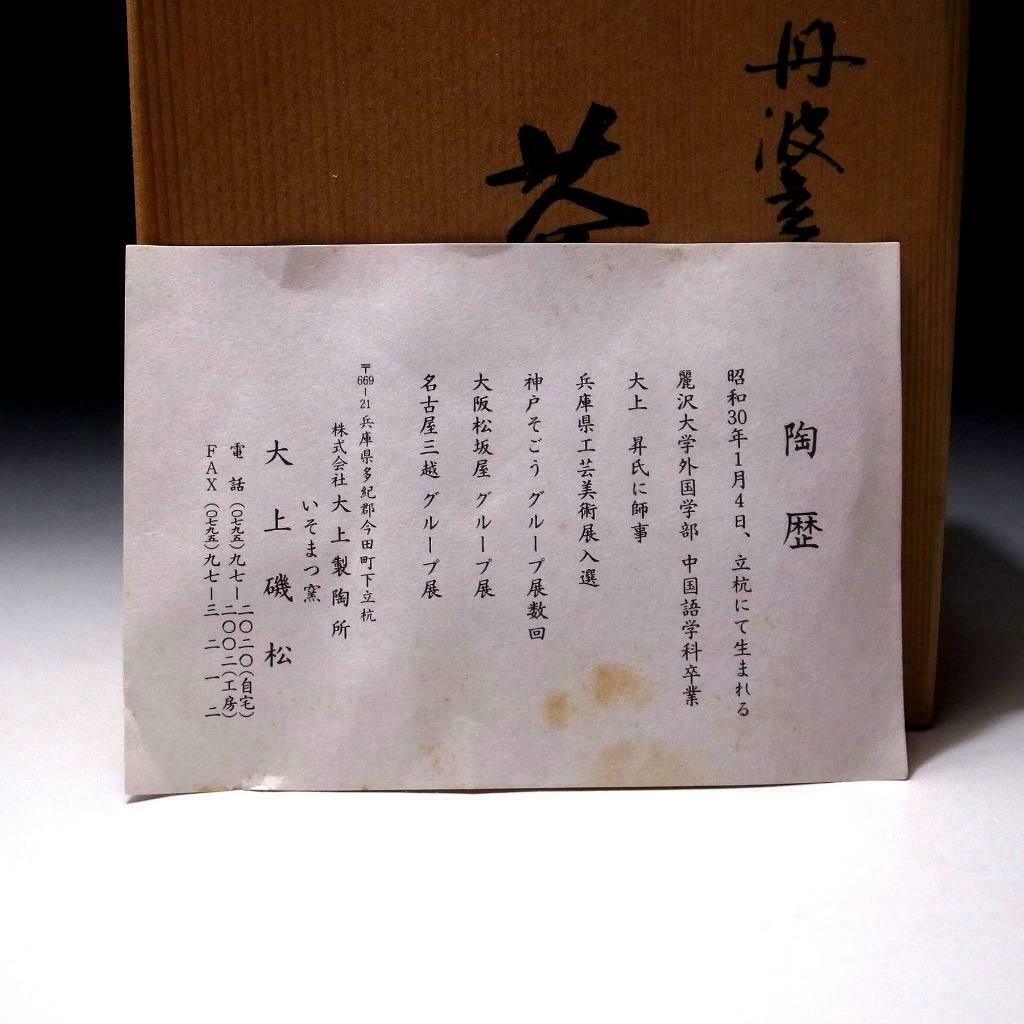 丹波立
茶
陶歴
昭和30年1月4日、立杭にて生まれる
麗沢大学外国学部 中国語学科卒業
大上 昇氏に師事
兵庫県工芸美術展入選
神戸そごう グループ展数回
大阪松坂屋 グループ展
名古屋三越 グループ展
〒669-21 兵庫県多紀郡今田町下立杭
株式会社 大上製陶所
いそまつ窯
大上磯松
電話(〇七九五)九七ー二〇二〇(自宅)
二〇〇二(工房)
FAX(〇七九五)九七ー三二一二